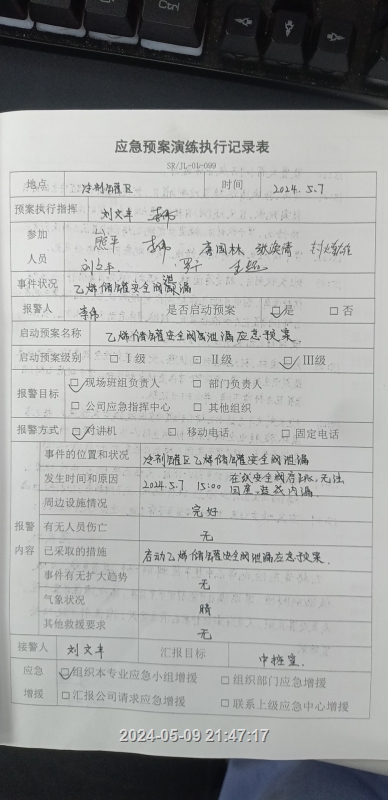 Ctrl
应急预案演练执行记录表
SR/JL-01-099
地点 冷剂罐区 时间 2024.5.7
预案执行指挥 刘文丰 李伟
参加人员 熊平 李伟 唐国林
刘文丰 罗干
事件状况 乙烯储罐安全阀泄漏
报警人 李伟 是否启动预案 ☑是 □否
启动预案名称 乙烯储罐安全阀泄漏应急预案
启动预案级别 □Ⅰ级 □Ⅱ级 ☑Ⅲ级
报警目标 ☑现场班组负责人 □部门负责人
□公司应急指挥中心 □其他组织
报警方式 ☑对讲机 □移动电话 □固定电话
报警内容 事件的位置和状况 冷剂罐区乙烯储罐安全阀泄漏
发生时间和原因 2024.5.7 15:00 在线安全阀存在,无法回座,造成内漏
周边设施情况 完好
有无人员伤亡 无
已采取的措施 启动乙烯储罐安全阀泄漏应急预案.
事件有无扩大趋势 无
气象状况 晴
其他救援要求 无
接警人 刘文丰 汇报目标 中控室
应急增援 ☑组织本专业应急小组增援 □组织部门应急增援
□汇报公司请求应急增援 □联系上级应急中心增援
2024-05-09 21:47:17